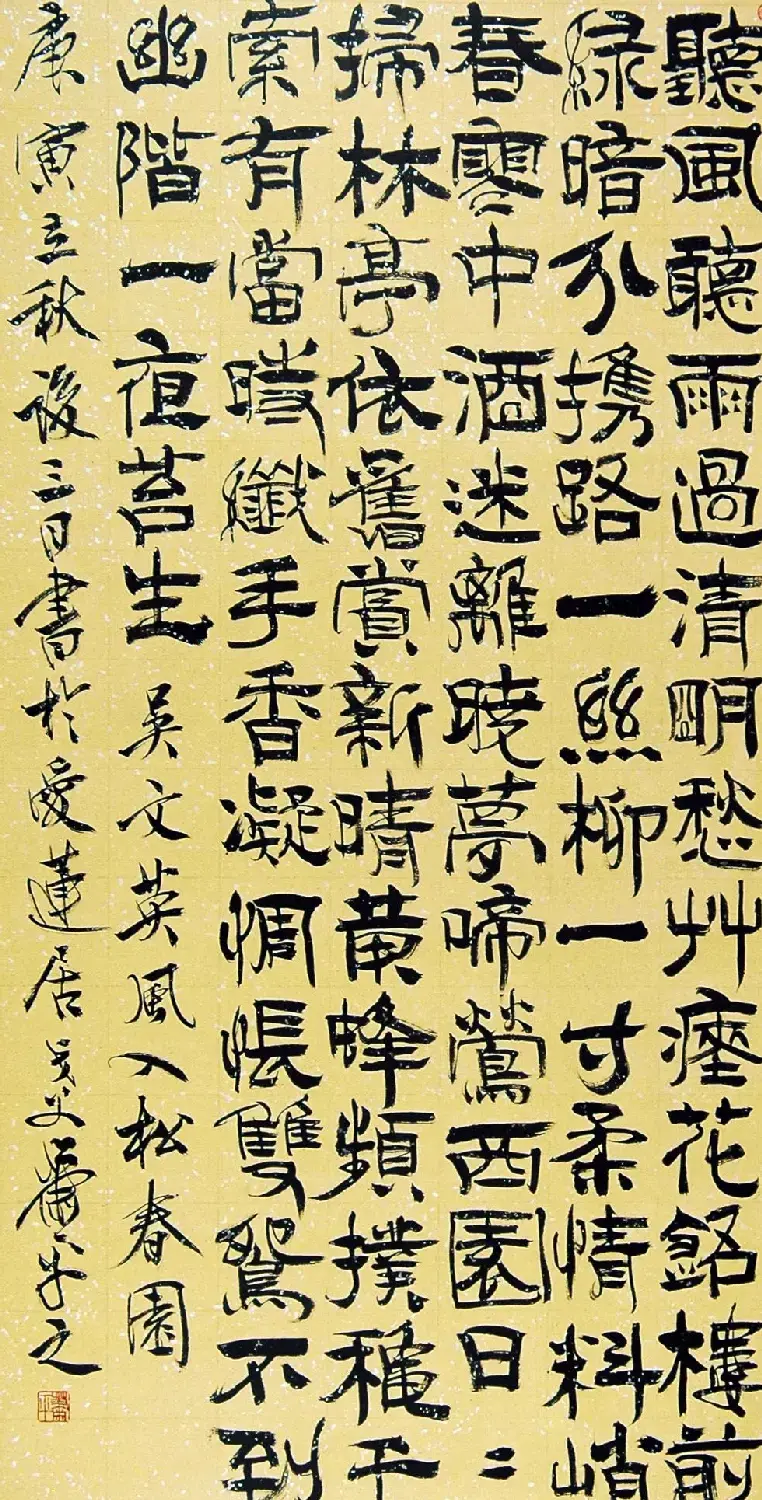 聽風聽雨過清明愁艸瘞花銘樓前
緑暗分携路一絲柳一寸柔情料峭
春寒中酒迷離曉夢啼鶯西園日二
掃林亭依舊賞新晴黄蜂頻撲穐千
索有當時纖手香凝惆悵雙鴛不到
幽階一夜苔生 吴文英風入松春園
庚寅立秋後三日書於愛蓮居